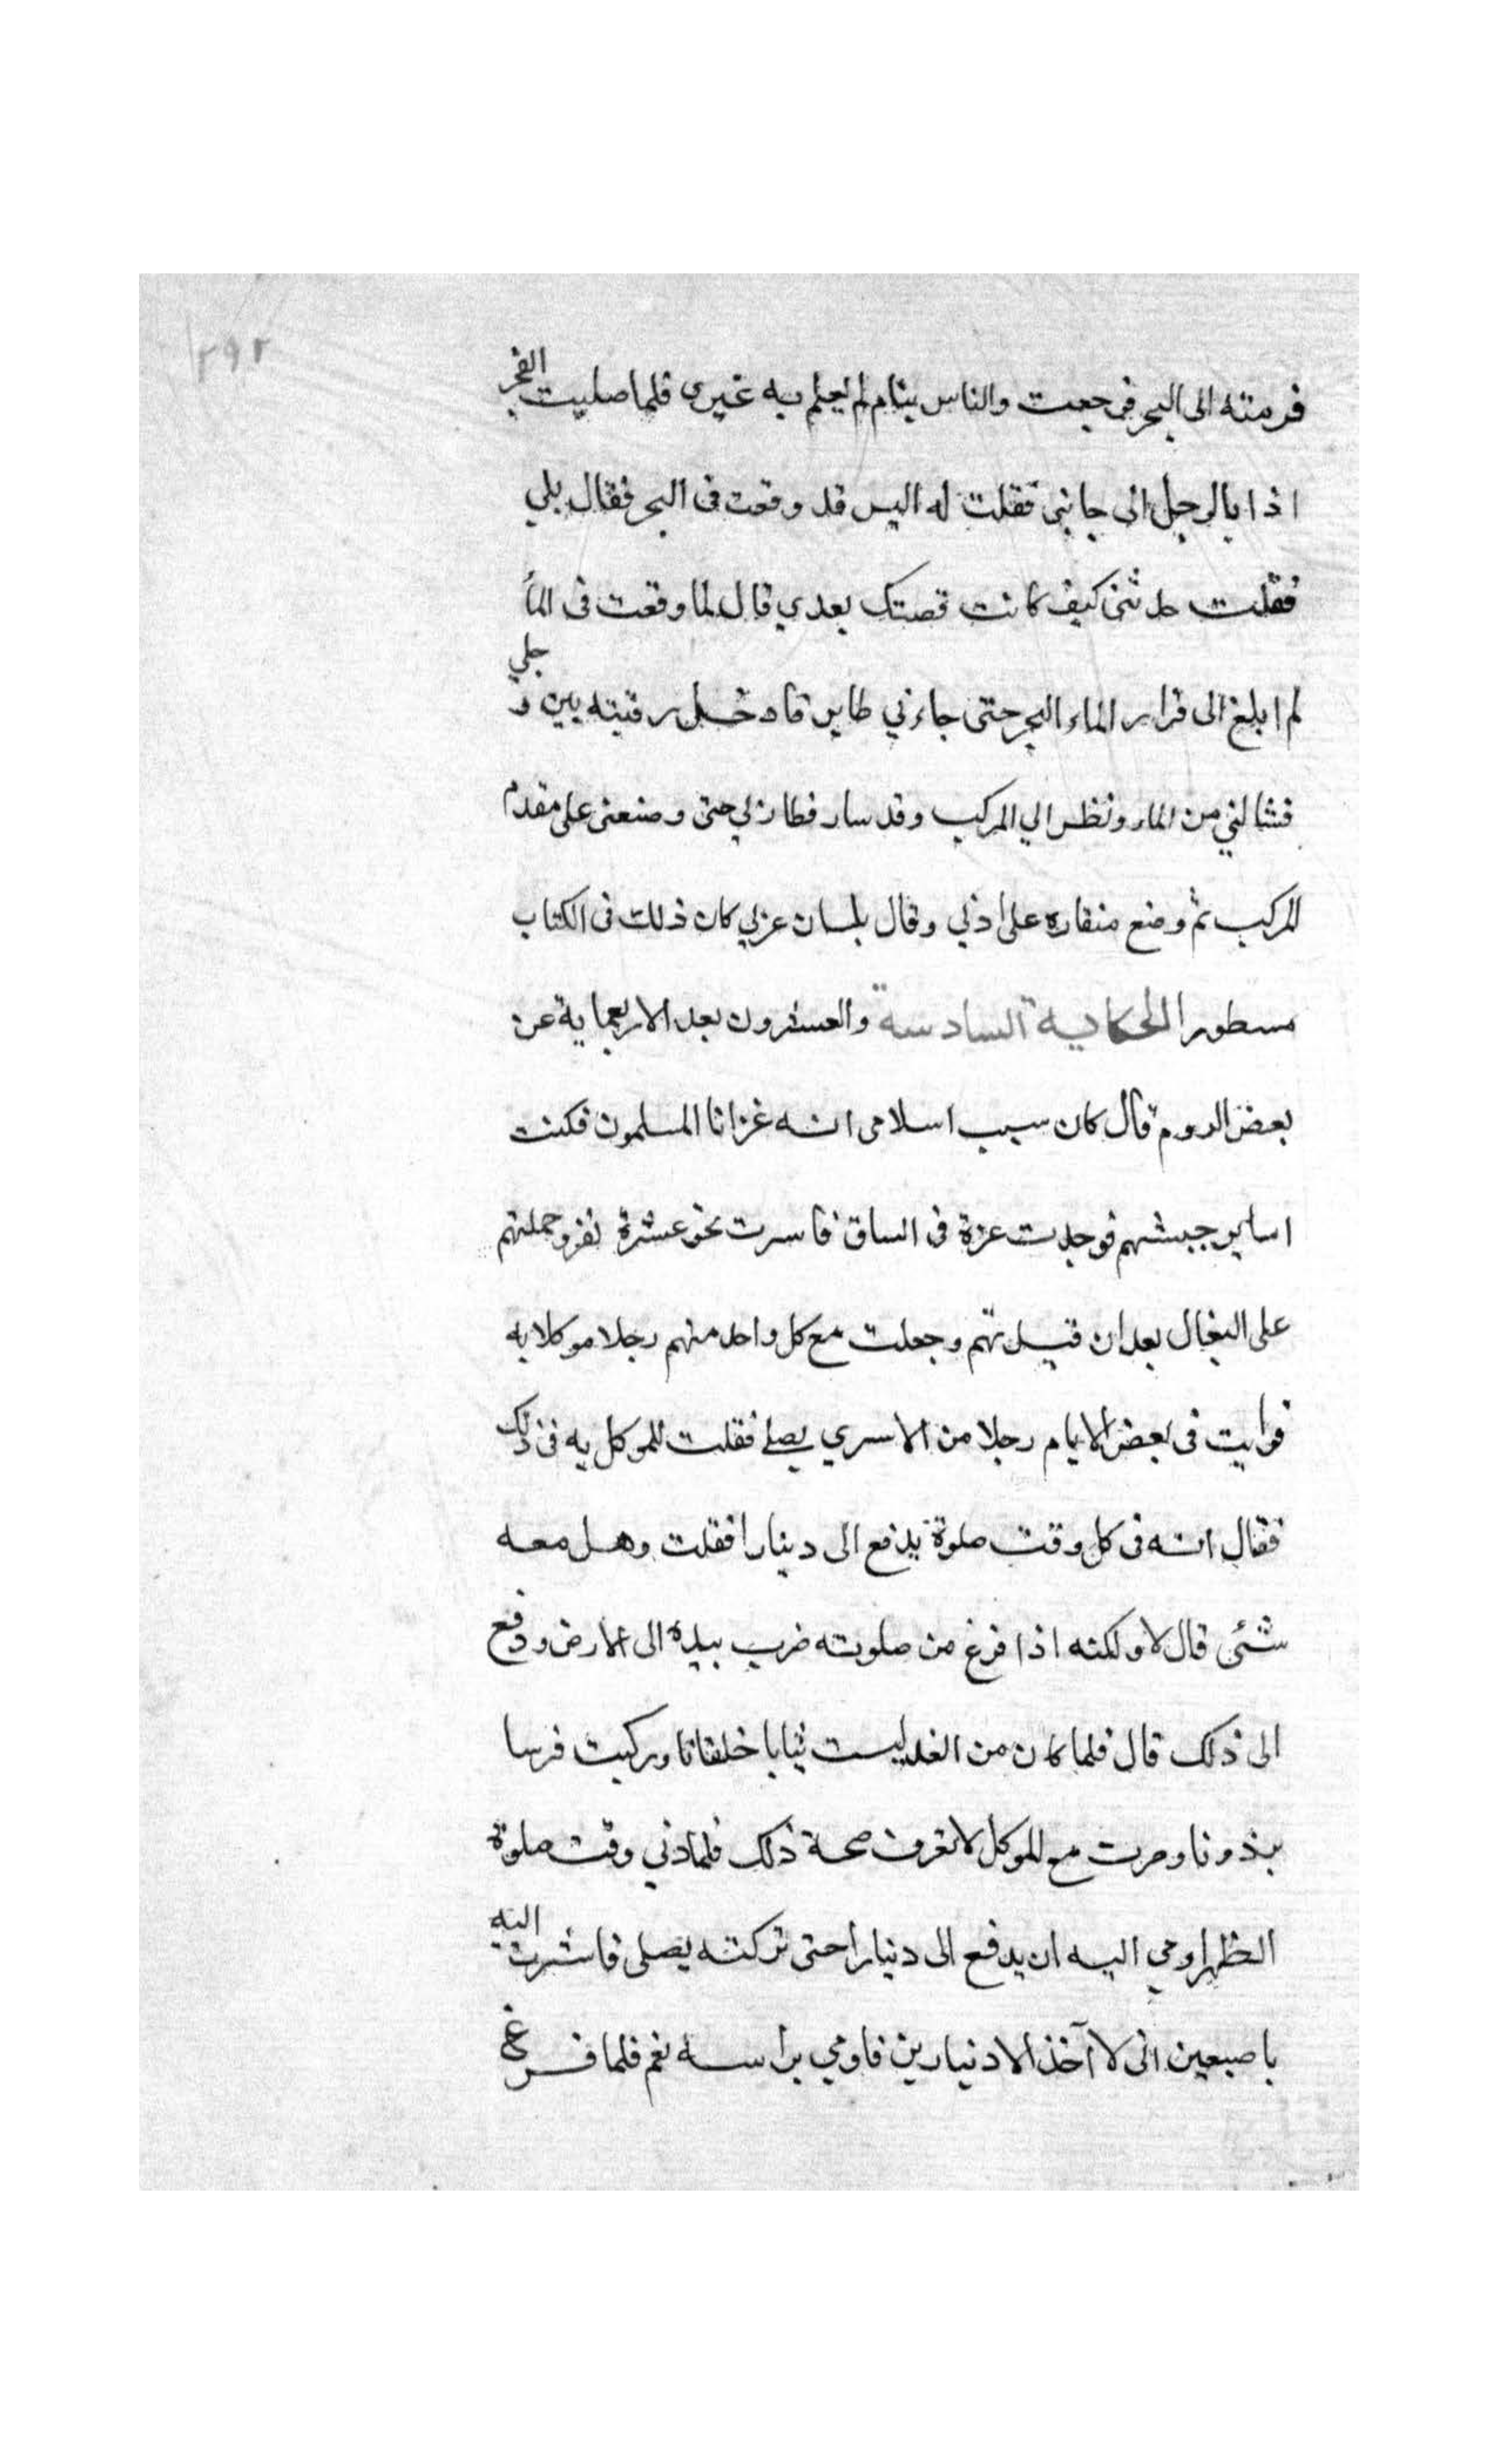 ٢٩٢
فرمته الى البحر فرجعت والناس ينام لم يعلم به غيرى فلما صليت الفجر
اذا بالرجل الى جانبى فقلت له اليس قد وقعت فى البحر فقال بلي
فقلت حدثنى كيف كانت قصتك بعدي قال لما وقعت فى الماُ
لم ابلغ الى قرار الماء البحر حتى جاءني طاير فادخل رقبته بين رجلي
فشالني من الماء ونظر الي المركب وقد سار فطار بي حتى وضعنى على مقدم
المركب ثم وضع منقاره على اذني وقال بلسان عربي كان ذلك فى الكتاب
مسطورا الحكاية السادسة والعشرون بعد الاربعماية عن
بعض الروم قال كان سبب اسلامى انه غزانا المسلمون فكنت
اساير جيشهم فوجدت عزة فى الساق فاسرت نحو عشرة نفر وحملتهم
على البغال بعد ان قيدتهم وجعلت مع كل واحد منهم رجلا موكلا به
فرايت فى بعض الايام رجلا من الاسري يصلى فقلت للموكل به فى ذلك
فقال انه فى كل وقت صلوة يدفع الى دينارا فقلت وهل معه
شئى قال لا ولكنه اذا فرغ من صلوته ضرب بيده الى الارض ودفع
الى ذلك قال فلما كان من الغد لبست ثيابا خلقانا وركبت فرسا
بذونا وصرت مع الموكل لا تعرف صحة ذلك فلما دني وقت صلوة
الظهر اومي اليه ان يدفع الى دنيارا حتى تركته يصلى فاشرت اليه
باصبعين انى لا آخذ الا دنيارين فاومي براسه نعم فلما فرغ